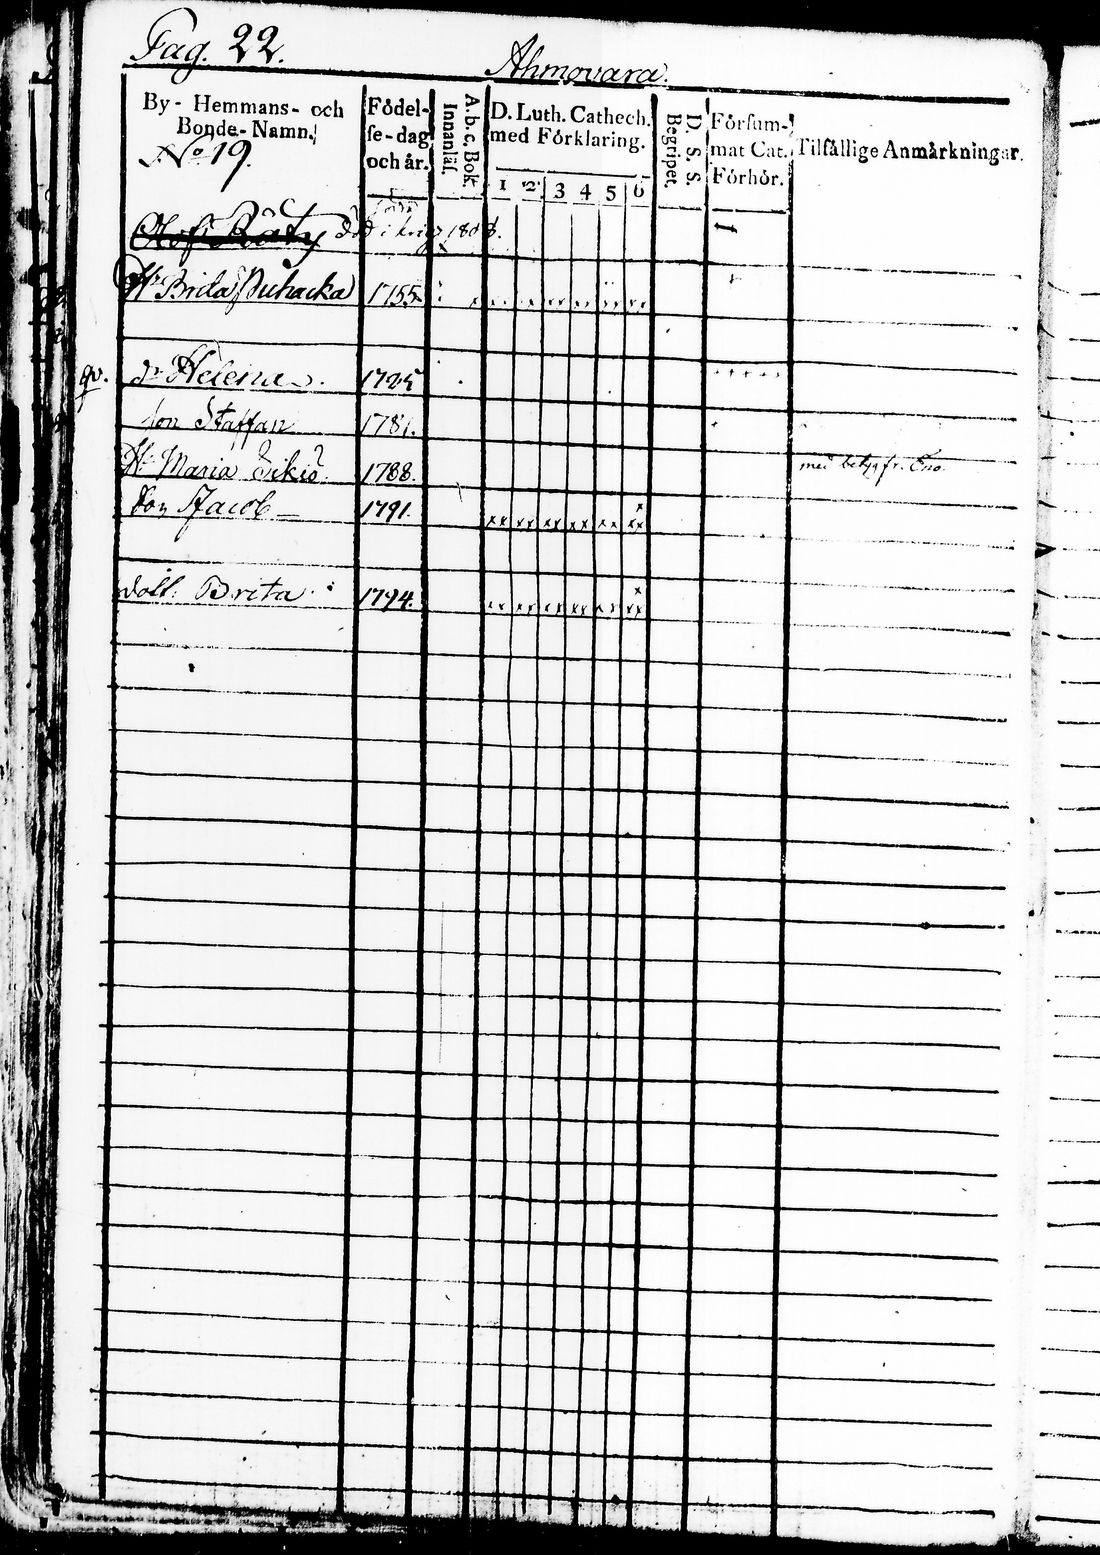 Pag. 22. Ahmovara.
By- Hemmans- och Bonde-Namn.
Födel-se-dag och år.
A.b.c, Bok. Innanläs.
D. Luth. Cathech. med Förklaring.
1 2 3 4 5 6
D. S. S. Begripet.
Försum-mat Cat. Förhör.
Tilfällige Anmärkningar.
No 19.
Olof Räty död i krig 1808.
H. Brita Puhacka 1755
qv. Helena 1725
Son Staffan 1781.
H. Maria 1788. med betyg fr. Eno.
Son Jacob 1791.
Dott. Brita 1794.